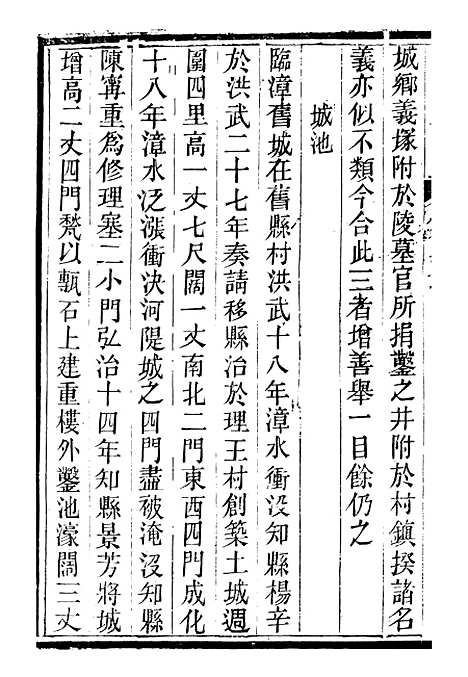 城鄉義塚附於陵墓官所捐鑿之井附於村鎮揆諸名
義亦似不類今合此三者增善舉一目餘仍之
城池
臨漳舊城在舊縣村洪武十八年漳水衝没知縣楊辛
於洪武二十七年奏請移縣治於理王村創築土城週
圍四里高一丈七尺闊一丈南北二門東西四門成化
十八年漳水泛漲衝決河隄城之四門盡被淹没知縣
陳寗重爲修理塞二小門弘治十四年知縣景芳將城
增高二丈四門甃以甎石上建重樓外鑿池濠闊三丈